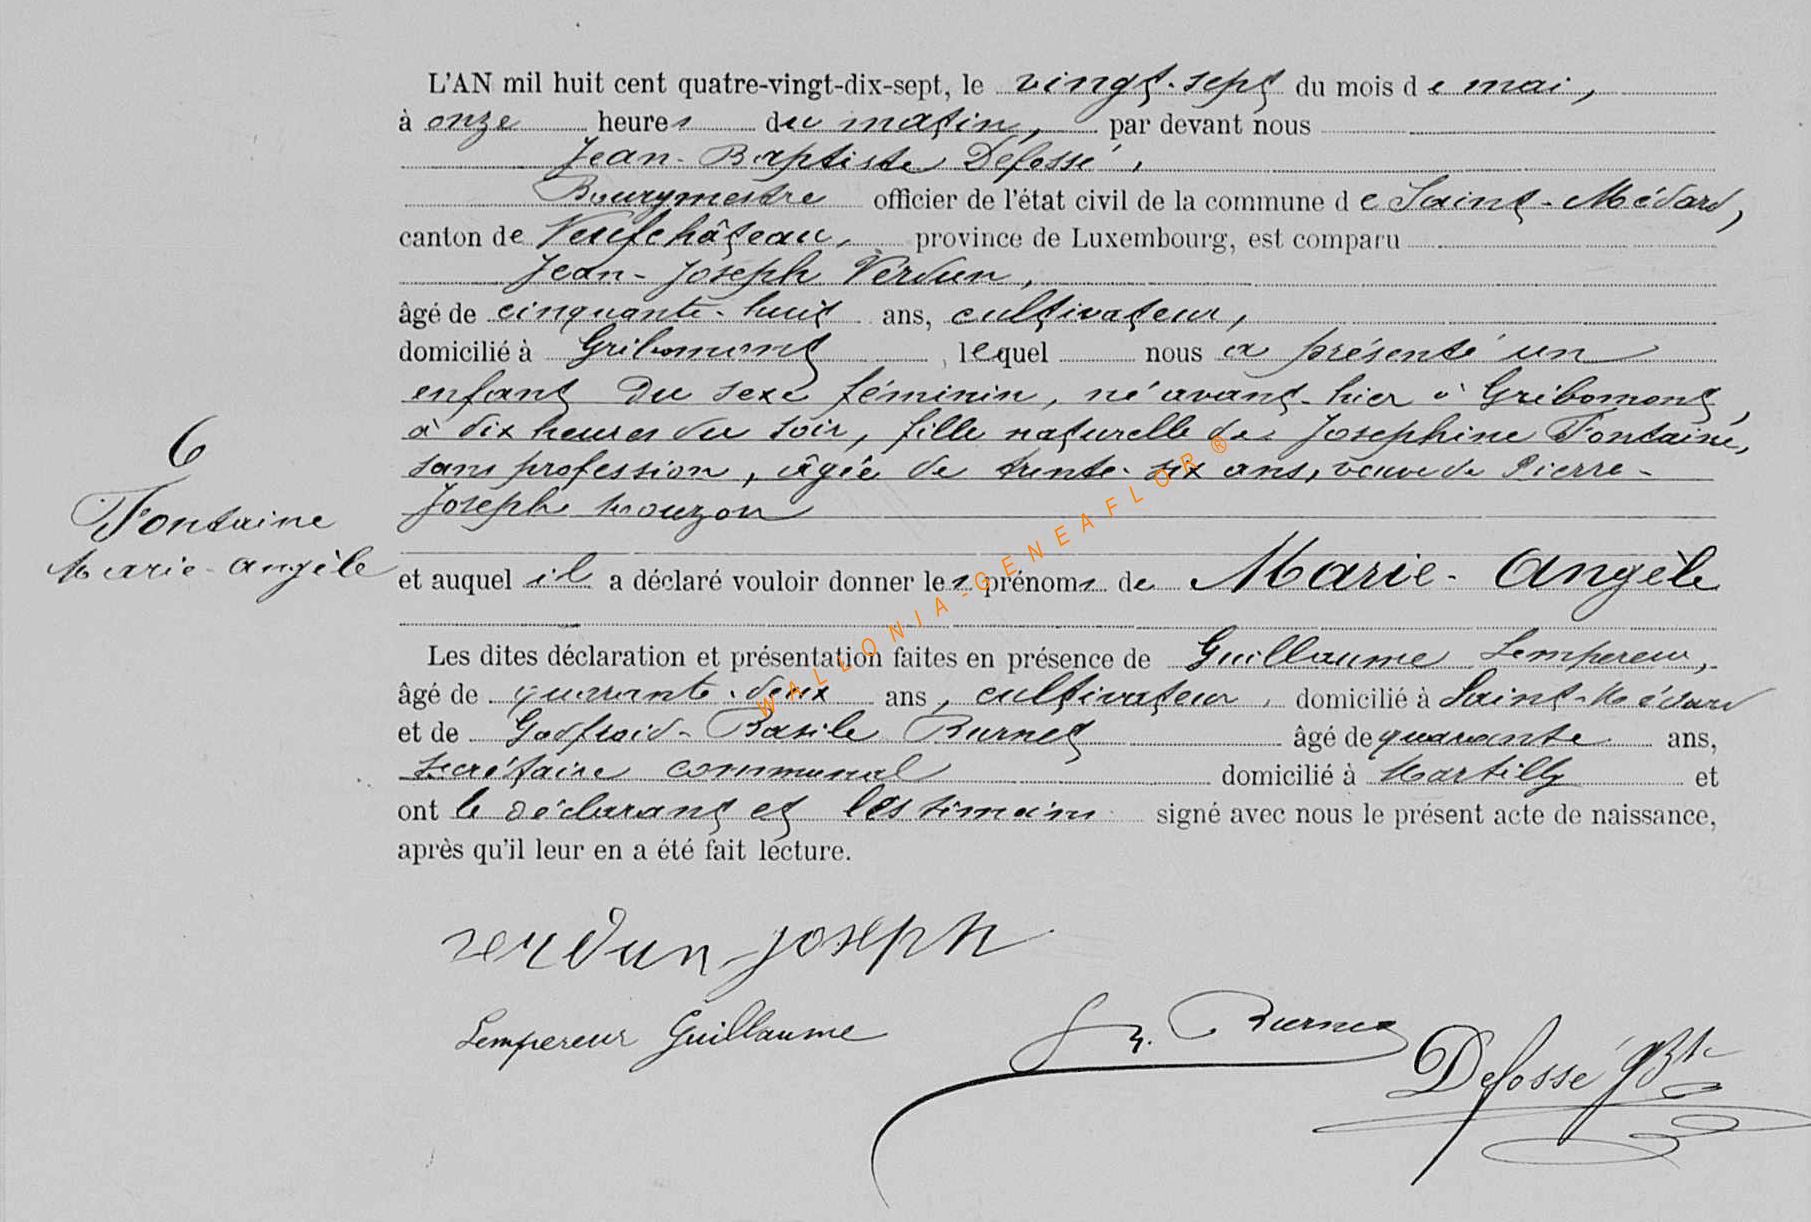 L'AN mil huit cent quatre-vingt-dix-sept, le vingt-sept du mois de mai,
à onze heures du matin, par devant nous
Jean-Baptiste Defossé,
Bourgmestre officier de l'état civil de la commune de Saint-Médard,
canton de Neufchâteau, province de Luxembourg, est comparu
Jean-Joseph Verdun,
âgé de cinquante-huit ans, cultivateur,
domicilié à Gribomont, lequel nous a présenté un
enfant du sexe féminin, né avant-hier à Gribomont,
à dix heures du soir, fille naturelle de Josephine Fontaine,
sans profession, âgée de trente-six ans, veuve de Pierre-
Joseph Mouzon
6
Fontaine
Marie-Angèle
et auquel il a déclaré vouloir donner les prénoms de Marie-Angèle
Les dites déclaration et présentation faites en présence de Guillaume Lempereur,
âgé de quarante-deux ans, cultivateur, domicilié à Saint-Médard
et de Godfroid-Basile Burnet âgé de quarante ans,
secrétaire communal domicilié à Martilly et
ont le déclarant et les témoins signé avec nous le présent acte de naissance,
après qu'il leur en a été fait lecture.
verdun joseph
Lempereur Guillaume
G. Burnet
Defossé JBte
WALLONIA-GENEAFLOR®